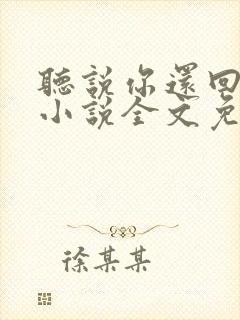 聽說你還回
小說全文免
徐某某